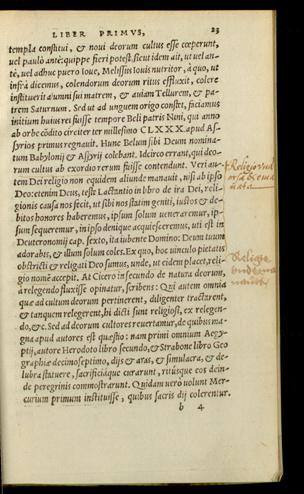 LIBER PRIMVS, 23
templa constitui, & noui deorum cultus esse cœperunt,
uel paulò antè: quippe fieri potest, sicut idem ait, ut uel an-
tè, uel adhuc puero Ioue, Melissus Iouis nutritor, à quo, ut
infrà dicemus, colendorum deorum ritus effluxit, colere
instituerit alumni sui matrem, & auiam Tellurem, & pa-
trem Saturnum. Sed ut ad unguem origo constet, faciamus
initium huius rei fuisse tempore Beli patris Nini, qui anno
ab orbe cōdito circiter ter millesimo CLXXX. apud As-
syrios primus regnauit. Hunc Belum sibi Deum nomina-
tum Babylonij & Assyrij colebant. Idcirco errant, qui deo-
rum cultus ab exordio rerum fuisse contendunt. Veri au-
tem Dei religio non equidem aliunde manauit, nisi ab ipso
Deo: etenim Deus, teste Lactantio in libro de ira Dei, reli-
gionis causa nos fecit, ut sibi nos statim geniti, iustos & de-
bitos honores haberemus, ipsum solum ueneraremur, ip-
sum sequeremur, in ipso denique acquiesceremus, uti est in
Deuteronomij cap. sexto, ita iubente Domino: Deum tuum
adorabis, & illum solum coles. Ex quo, hoc uinculo pietatis
obstricti & religati Deo sumus, unde, ut eidem placet, reli-
gio nomē accepit. At Cicero in secundo de natura deorum,
à relegendo fluxisse opinatur, scribens: Qui autem omnia
quæ ad cultum deorum pertinerent, diligenter tractarent,
& tanquam relegerent, hi dicti sunt religiosi, ex relegen-
do, &c. Sed ad deorum cultores reuertamur, de quibus ma-
gna apud autores est quæstio: nam primi omnium Aegy-
ptij, autore Herodoto libro secundo, & Strabone libro Geo
graphiæ decimoseptimo, dijs & aras, & simulacra, & de-
lubra statuere, sacrificiáque curarunt, ritúsque eos dein-
de peregrinis commostrarunt. Quidam uero uolunt Mer-
curium primum instituisse, quibus sacris dij colerentur.
b 4
Religio
Religio